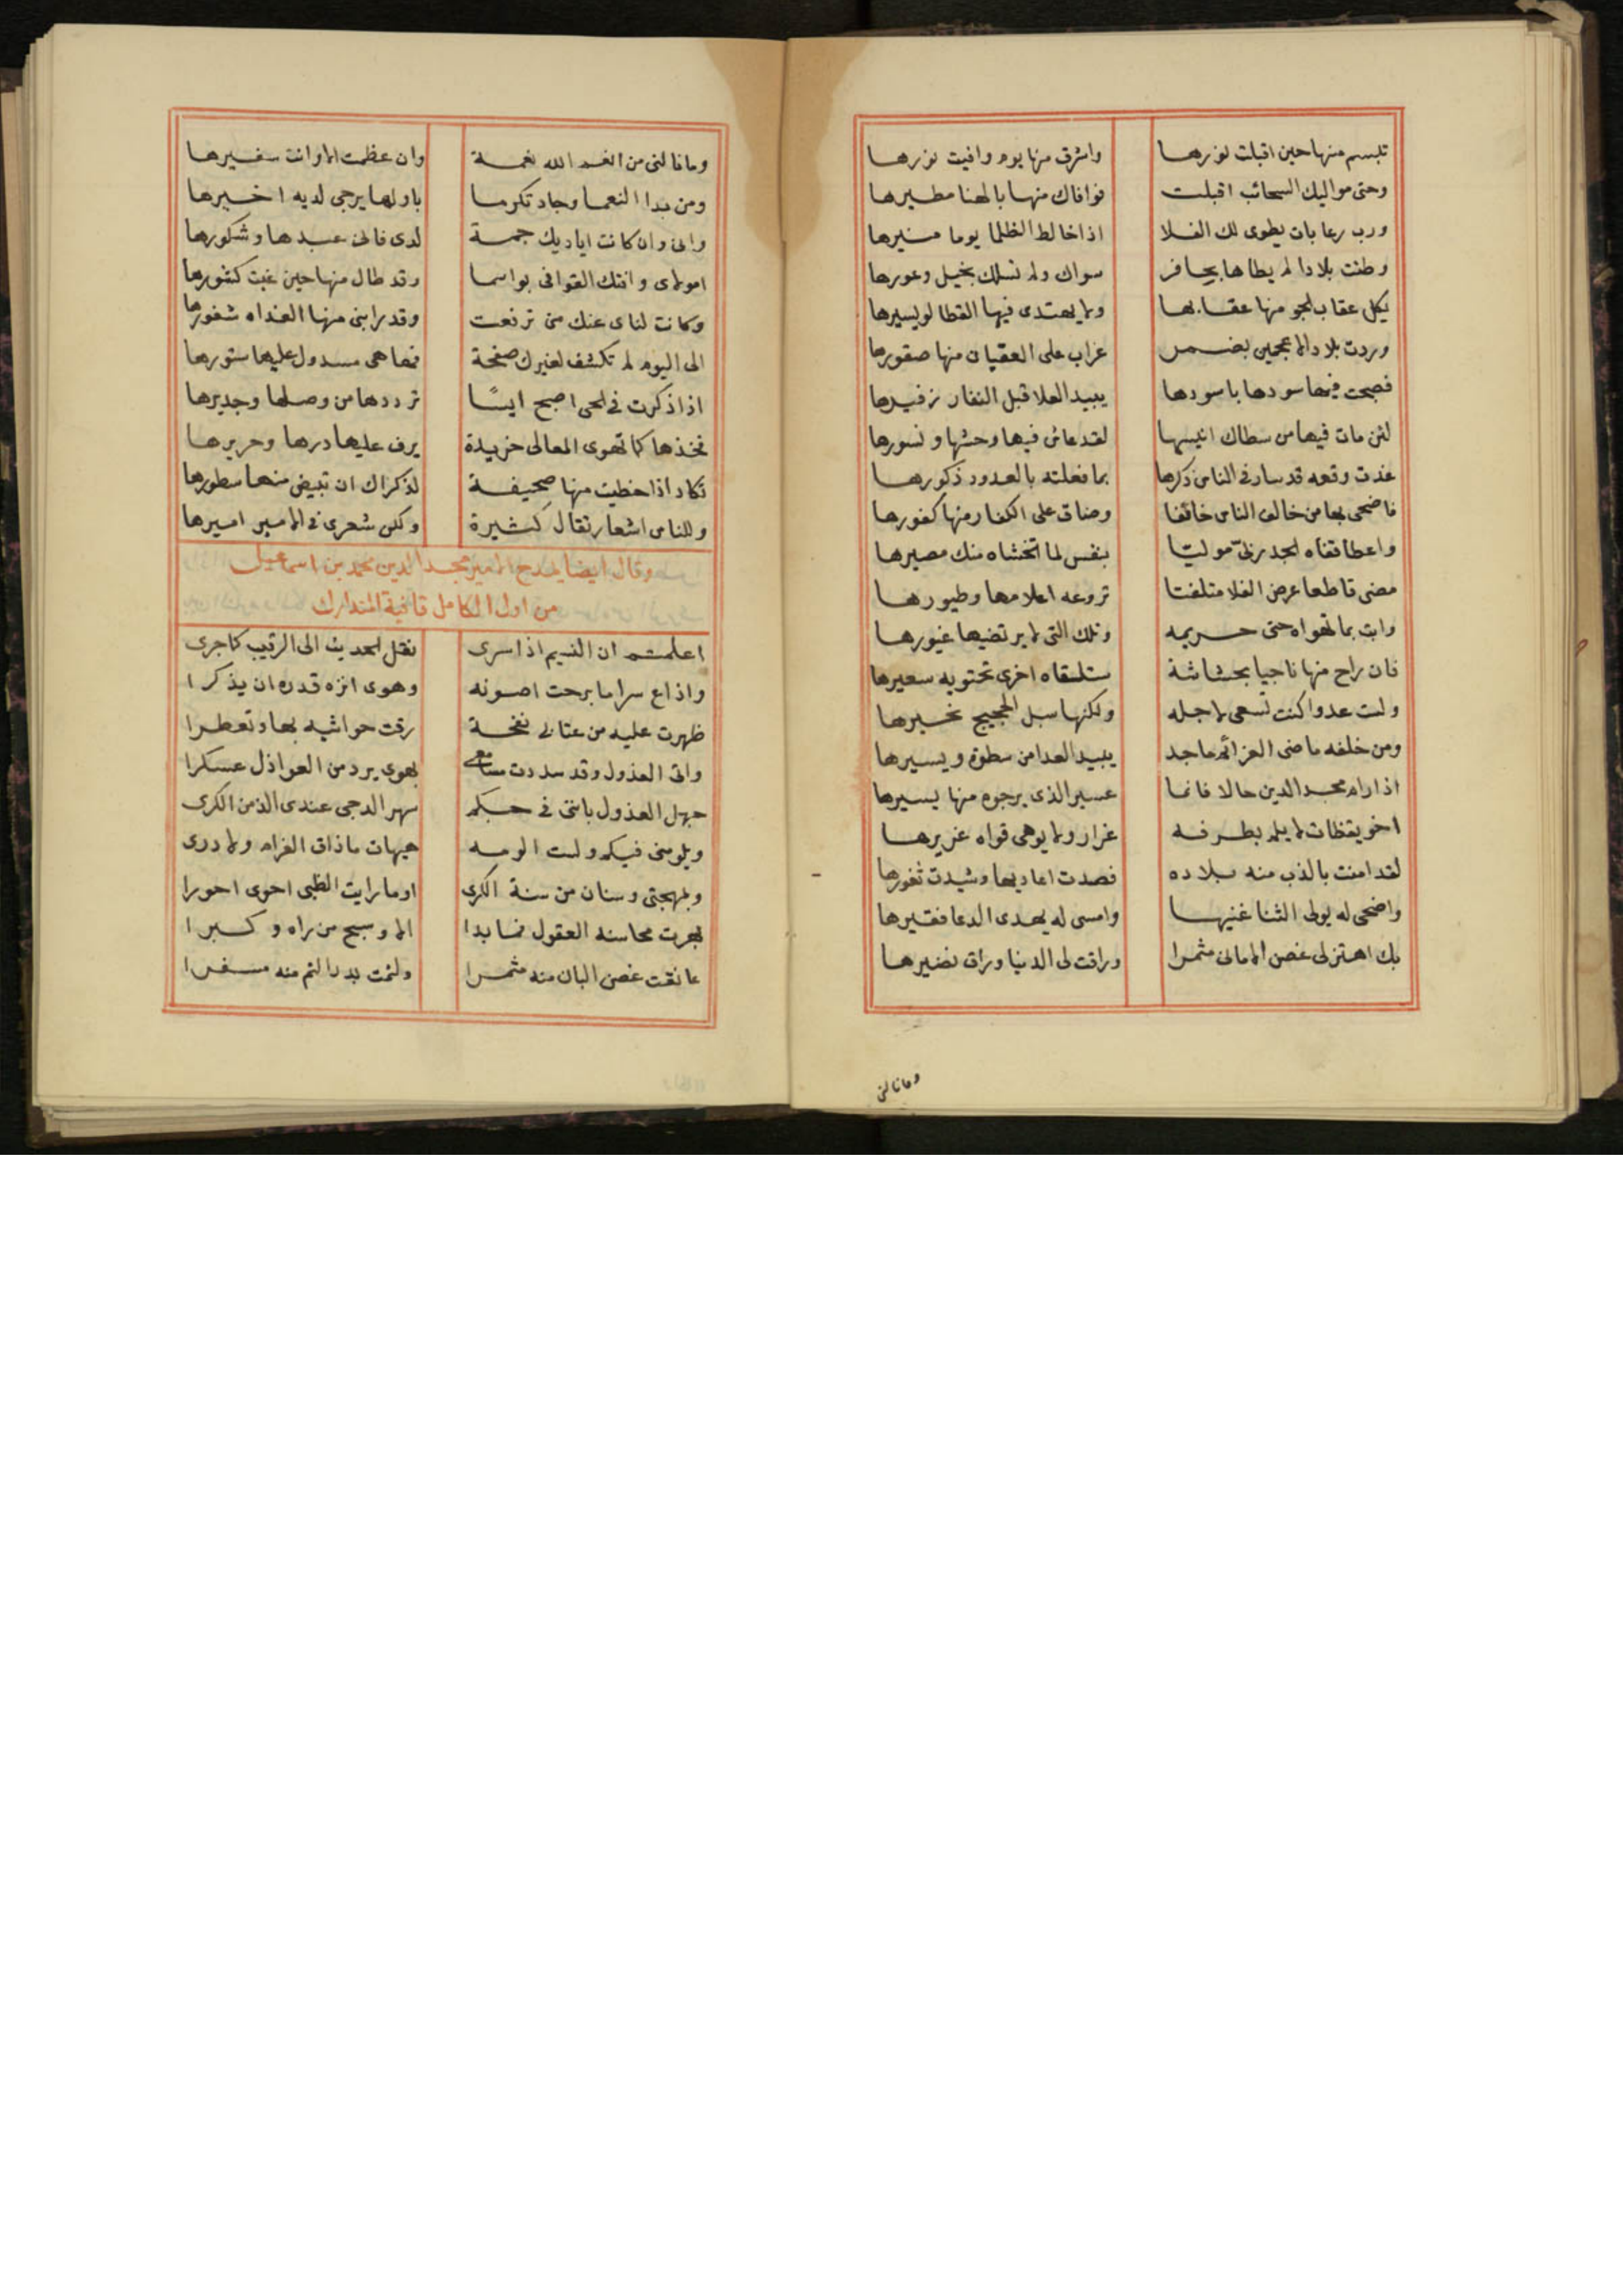 تبسم منها حين اقبلت نورها واشرق منها يوم وافيت نورها
وحتى مواليك السحائب اقبلت فوافاك منها بالهنا مطيرها
ورب رعابات يطوى لك الفلا اذا خالط الظلما يوما منيرها
وطئت بلادا لم يطاها بحافر سواك ولم تسلك بخيل وعورها
يكل عقاب الجو منها عقابها ولا يهتدى فيها القطا لو يسيرها
وردت بلاد الاعجمين بضمر عراب على العقبان منها صقورها
فصبحت فيها سودها باسودها يبيد العلا قبل النفار زفيرها
لئن مات فيها من سطاك انيسها لقد عاش فيها وحشها ونسورها
غدت وقعه قد سار فى الناس ذكرها بما فعلته بالعدو ذكورها
فاضحى بها من خالف الناس خائفا وضاق على الكفار منها كفورها
واعطا قفاه موليا بنفس لما تخشاه منك مصيرها
مضى قاطعا عرض الفلا متلفتا تروعه اعلامها وطيورها
وابت بما تهواه حتى حريمه وتلك التى لا يرتضيها غيورها
فان راح منها ناجيا بحشاشة ستلقاه اخرى تحتويه سعيرها
ولست عدوا كنت تسعى لاجله ولكنها سبل الحجيج تخيرها
ومن خلفه ماضى العزائم ماجد يبيد العدا من سطوة ويسيرها
اذا رام مجد الدين حالا فانما عسير الذى يرجوه منها يسيرها
اخو يقظات لا يلم بطرفه غرار ولا يوهى قواه غريرها
لقد امنت بالذب منه بلاده فصدت اعاديها وشيدت ثغورها
واضحى له يولى الثنا غنيها وامسى له يهدى الدعا فقيرها
بك اهتز لى غصن الامانى مثمرا وراقت لى الدنيا وراق نضيرها
وما نالنى
وما نالنى من انعم الله نعمة وان عظمت الا وانت سفيرها
ومن بدا النعما وجاد تكرما باولها يرجى لديه اخيرها
وانى وان كانت اياديك جمة لدى فانى عبدها وشكورها
امولاى وافتك القوافى بواسما وقد طال منها حين غبت كشورها
وكانت لناى عنك منى ترفعت وقد رابنى منها الغداه سفورها
الى اليوم لم تكشف لغيرك صفحة فها هى مسدول عليها ستورها
اذا ذكرت فى الحى اصبح ايسا ترددها من وصلها وجديرها
فخذها كما تهوى المعالى خريدة يرف عليها درها وحريرها
تكاد اذا خطت منها صحيفة لذكراك ان تبيض منها سطورها
وللناس اشعار تقال كثيرة ولكن شعرى فى الامير اميرها
وقال ايضا يمدح الامير مجد الدين محمد بن اسماعيل
من اول الكامل قافية المتدارك
اعلمتم ان النسيم اذا سرى نقل الحديث الى الرقيب كما جرى
واذاع سرا ما برحت اصونه وهوى انزه قدره ان يذكرا
ظهرت عليه من عتابى نفحة رقت حواشيه بها وتعطرا
واتى العذول وقد سددت مسامعى بهوى يرد من العواذل عسكرا
جهل العذول باننى فى حبكم سهر الدجى عندى الذ من الكرى
ويلومنى فيكم ولست الومه هيهات ما ذاق الغرام ولا درى
وبمهجتى وسنان من سنة الكرى اوما رايت الظبى احوى احورا
بهرت محاسنه العقول فما بدا الا وسبح من راه وكبرا
عانقت غصن البان منه مثمرا ولثمت بدر التم منه مسفرا